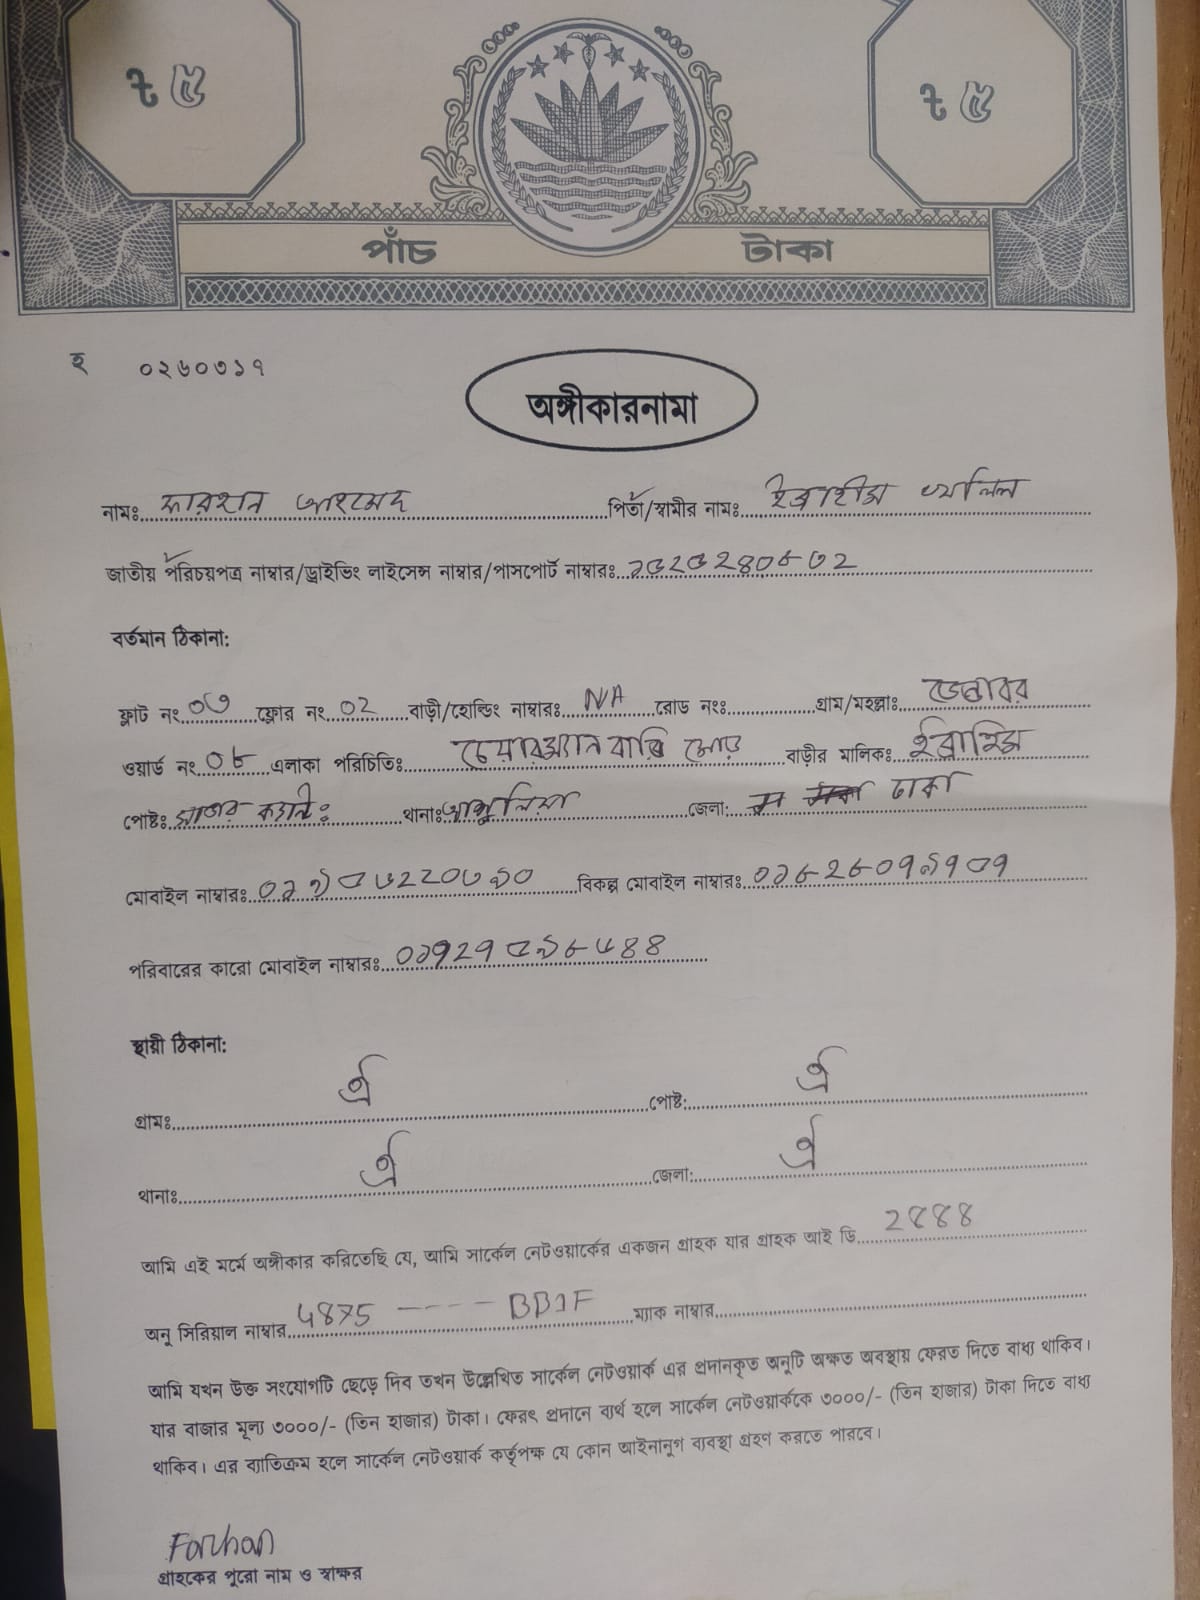 ট ৫ ট ৫
পাঁচ টাকা
হ ০২৬০৩১৭
অঙ্গীকারনামা
নামঃ ফারহান আহমেদ পিতা/স্বামীর নামঃ ইব্রাহীম খলিল
জাতীয় পরিচয়পত্র নাম্বার/ড্রাইভিং লাইসেন্স নাম্বার/পাসপোর্ট নাম্বারঃ
বর্তমান ঠিকানা:
ফ্লাট নং ০৩ ফ্লোর নং ০২ বাড়ী/হোল্ডিং নাম্বারঃ N/A রোড নংঃ গ্রাম/মহল্লাঃ
ওয়ার্ড নং ০৮ এলাকা পরিচিতিঃ চেয়ারম্যান বাড়ি মোড় বাড়ীর মালিকঃ ইব্রাহিম
পোষ্টঃ থানাঃ আশুলিয়া জেলা: ঢাকা
মোবাইল নাম্বারঃ বিকল্প মোবাইল নাম্বারঃ
পরিবারের কারো মোবাইল নাম্বারঃ
স্থায়ী ঠিকানা:
গ্রামঃ ঐ পোষ্ট: ঐ
থানাঃ ঐ জেলা: ঐ
আমি এই মর্মে অঙ্গীকার করিতেছি যে, আমি সার্কেল নেটওয়ার্কের একজন গ্রাহক যার গ্রাহক আই ডি
অনু সিরিয়াল নাম্বার ম্যাক নাম্বার
আমি যখন উক্ত সংযোগটি ছেড়ে দিব তখন উল্লেখিত সার্কেল নেটওয়ার্ক এর প্রদানকৃত অনুটি অক্ষত অবস্থায় ফেরত দিতে বাধ্য থাকিব।
যার বাজার মূল্য ৩০০০/- (তিন হাজার) টাকা। ফেরৎ প্রদানে ব্যর্থ হলে সার্কেল নেটওয়ার্ককে ৩০০০/- (তিন হাজার) টাকা দিতে বাধ্য
থাকিব। এর ব্যতিক্রম হলে সার্কেল নেটওয়ার্ক কর্তৃপক্ষ যে কোন আইনানুগ ব্যবস্থা গ্রহণ করতে পারবে।
Farhan
গ্রাহকের পুরো নাম ও স্বাক্ষর